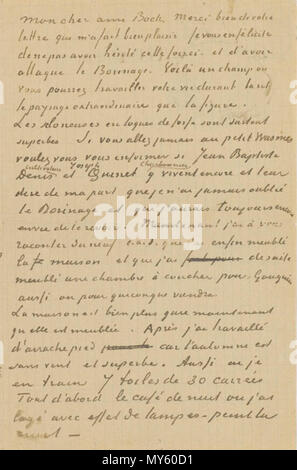 mon cher ami Boch. Merci bien de votre
lettre qui m'a fait bien plaisir. Je vous en félicite
de ne pas avoir hésité cette fois ci et d'avoir
attaqué le Borinage. Voilà un champ ou
vous pourrez travailler votre vie durant tant
le paysage extraordinaire que la figure.
Les sloneuses en loques de fosse sont surtout
superbes. Si vous allez jamais au petit Wasmes
voulez vous vous informer si Jean Baptiste
Denis cultivateur et Joseph Quenet Charbonnier y vivent encore et leur
dire de ma part que je n'ai jamais oublié
le Borinage et que j'aurais toujours encore
envie de le revoir. Maintenant j'ai à vous
raconter du neuf c.à.d. que j'ai enfin meublé
la maison et que j'ai de suite
meublé une chambre à coucher pour Gauguin
aussi ou pour quiconque viendra.
La maison est bien plus gaie maintenant
qu'elle est meublée. Après j'ai travaillé
d'arrache pied car l'automne est
sans vent et superbe. Aussi ai je
en train 7 toiles de 30 carrées
Tout d'abord le café de nuit ou j'ai
logé avec effet de lampes. peint la
nuit —
alamy
Image ID: MY60D1
www.alamy.com